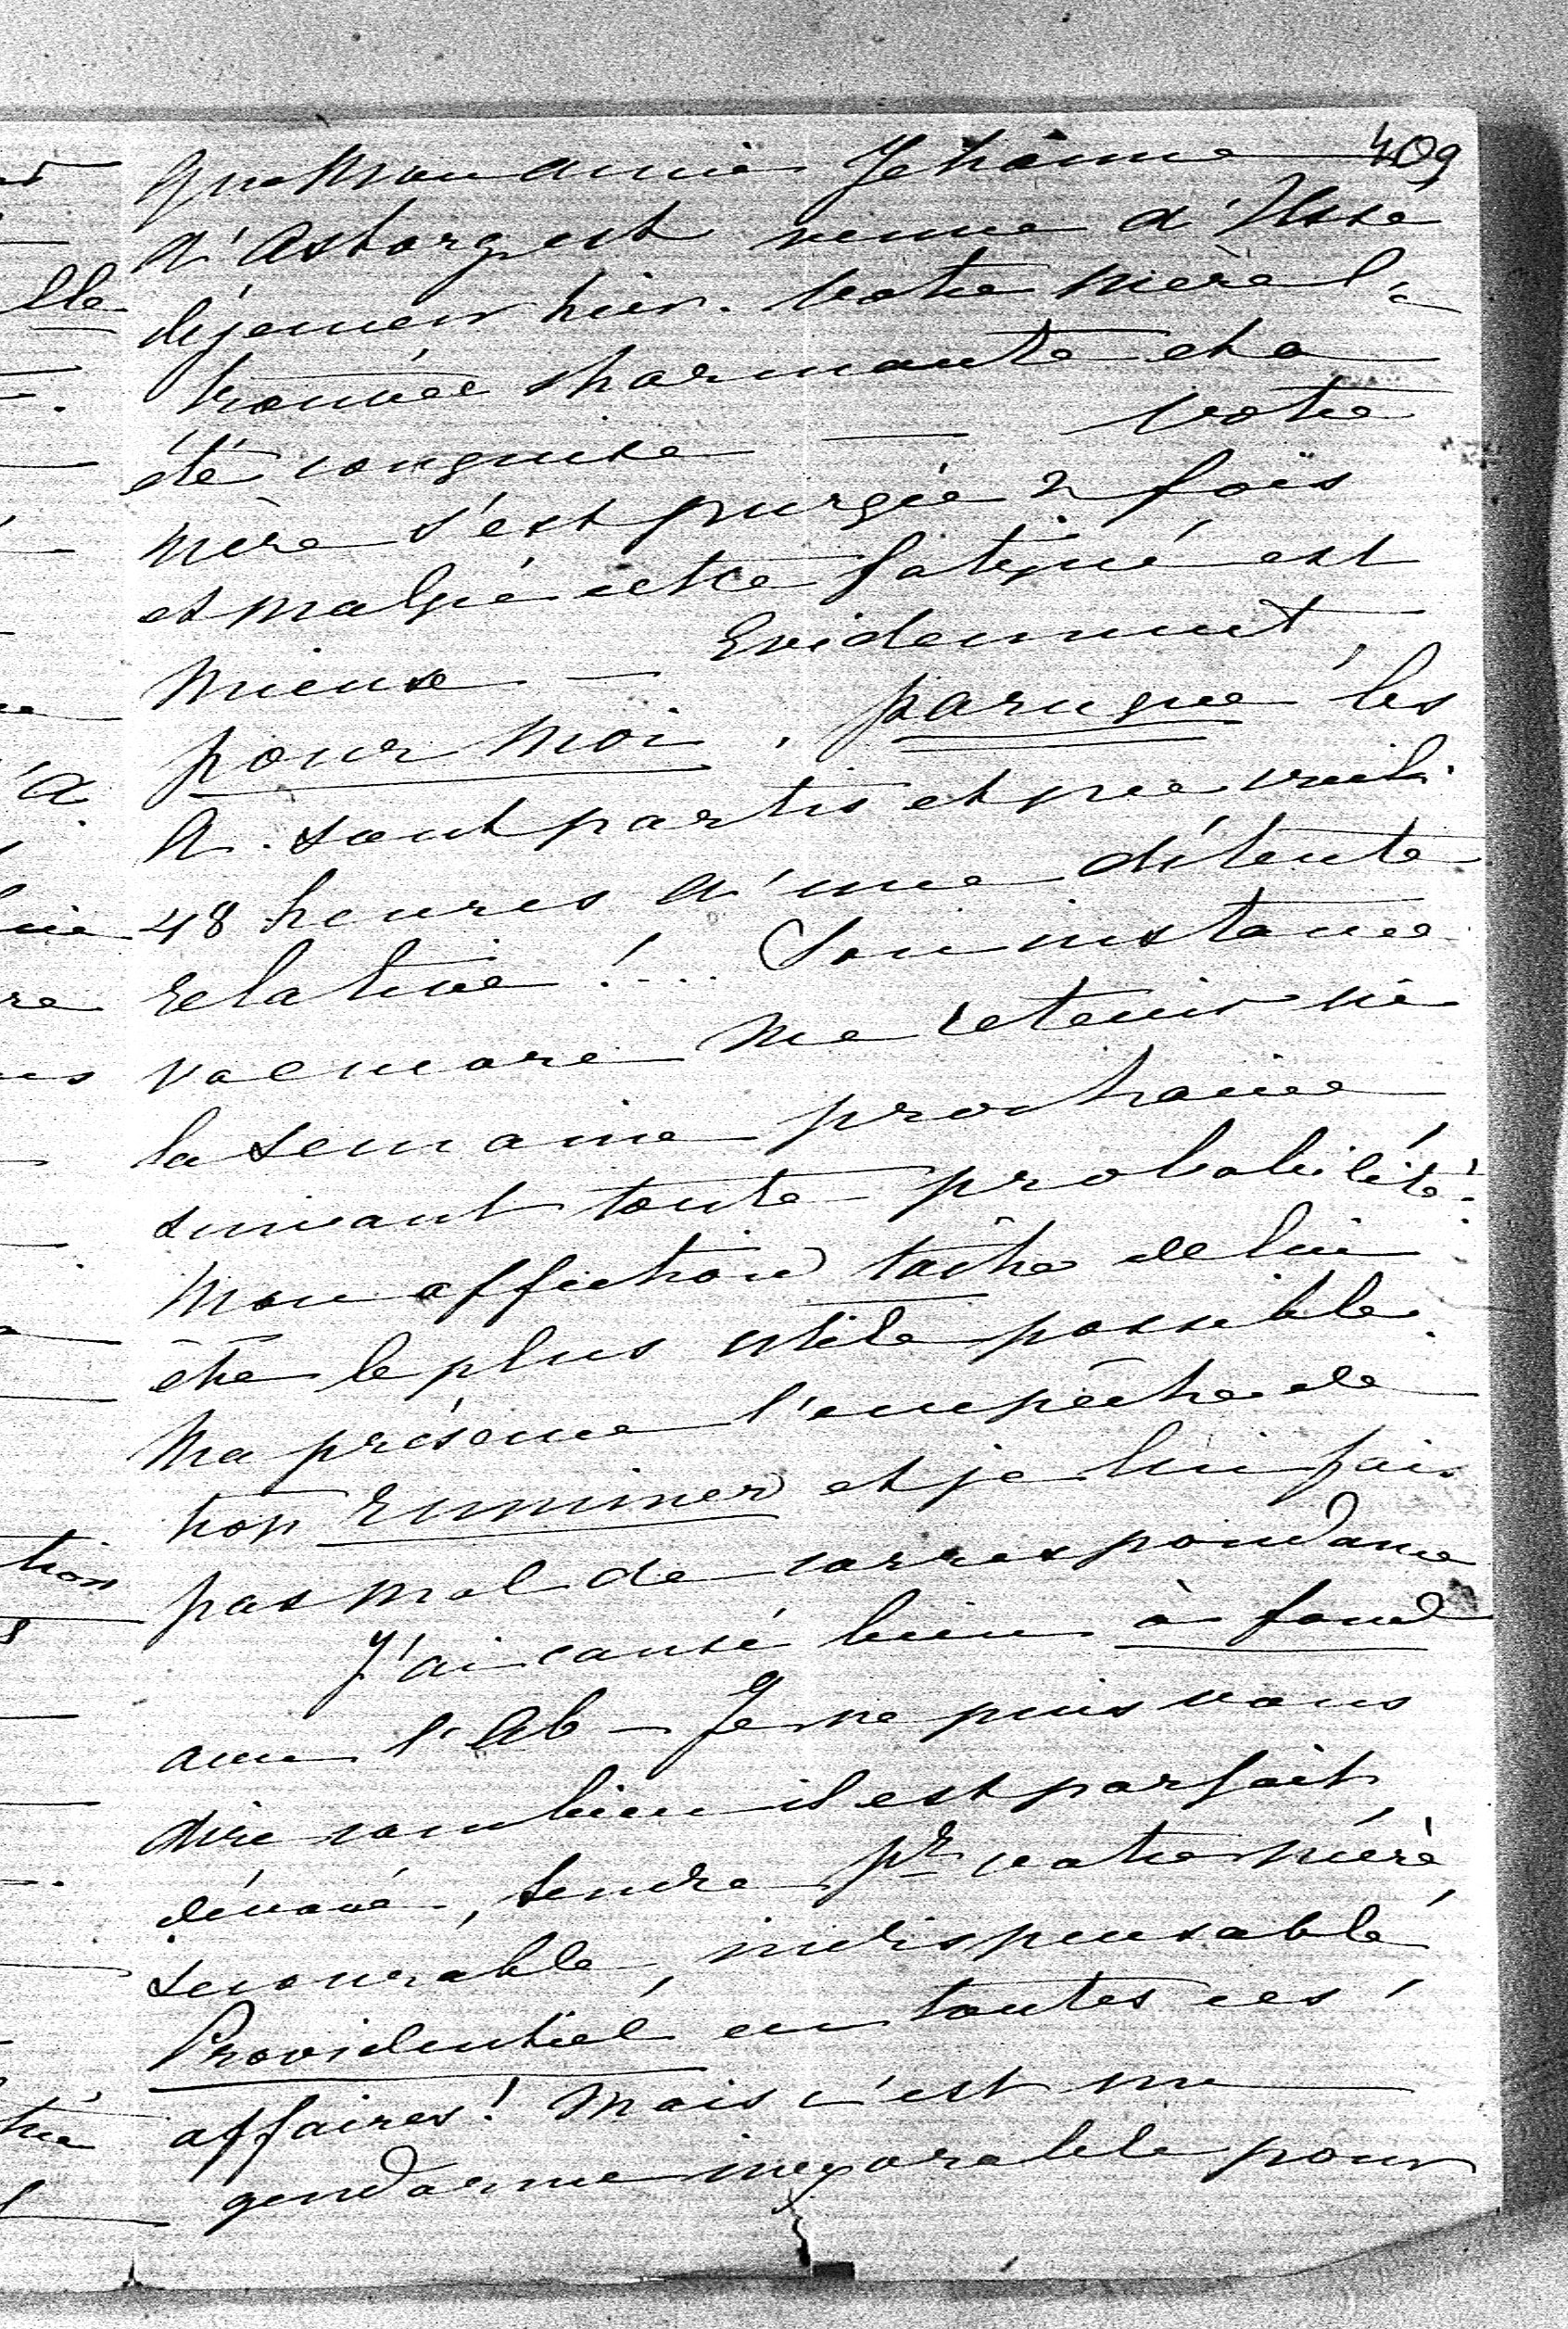 409
que Mon amie Jehanne
d'Astorg est venue d'Ussé
déjeuner hier. Votre mère l'a
trouvée charmante et a
été conquise — Votre
mère s'est purgée 2 fois
et malgré cette fatigue est
mieux — Evidemment,
pour moi, parceque les
A. sont partis et que voilà
48 heures d'une détente
relative!... Son instance
va encore me retenir ici
la semaine prochaine
suivant toute probabilité.
Mon affection tâche de lui
être le plus utile possible.
Ma présence l'empêche de
trop ruminer et je lui fais
pas mal de correspondance
J'ai causé bien à fond
avec l'Ab — Je ne puis vous
dire combien il est parfait,
dévoué, tendre pr votre mère,
secourable, indispensable,
Providentiel en toutes ces
affaires! Mais c'est un
gendarme inexorable pour